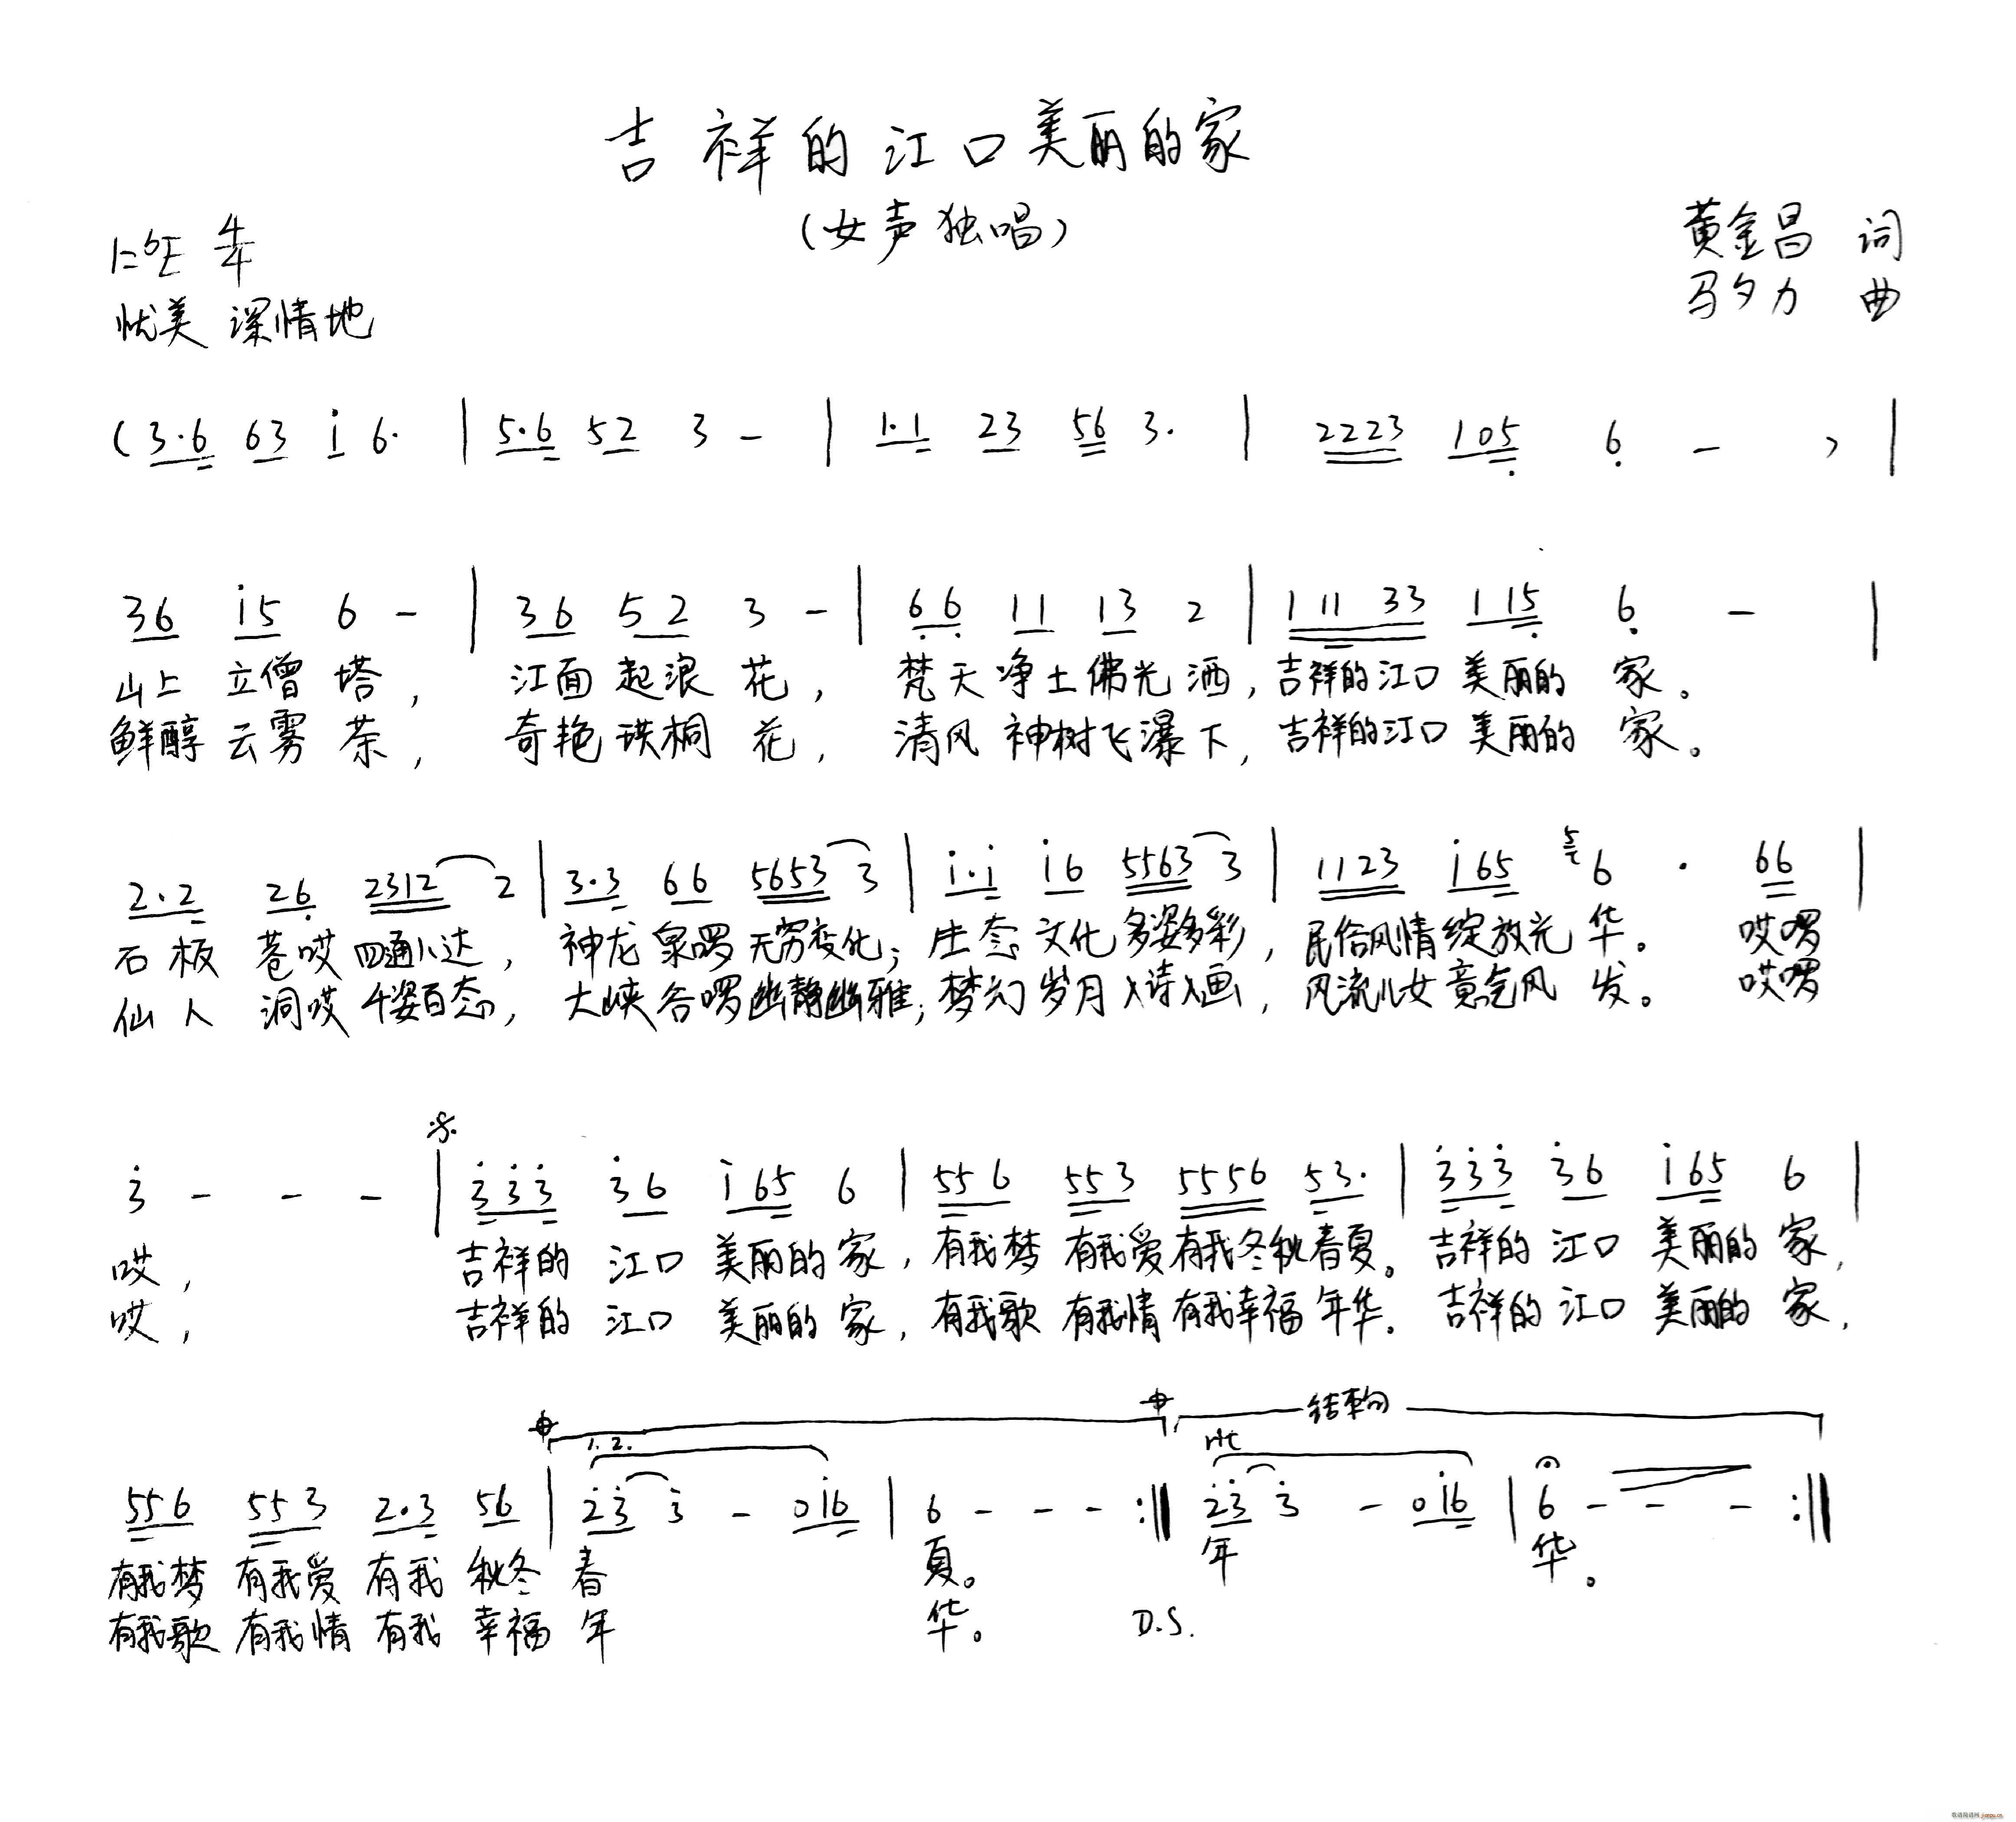 吉祥的江口美丽的家
(女声独唱)
1=bE 4/4
黄金昌 词
优美 深情地
马夕力 曲
(3·6 63 i 6· | 5·6 52 3 - | 1·1 23 56 3· | 2223 105 6 - ) |
36 i5 6 - | 36 52 3 - | 66 11 13 2 | 111 33 115 6 - |
山上 立僧 塔, 江面 起浪 花, 梵天净土佛光洒, 吉祥的江口 美丽的 家。
鲜醇 云雾 茶, 奇艳 珙桐 花, 清风 神树飞瀑下, 吉祥的江口 美丽的 家。
2·2 26 2312 2 | 3·3 66 5653 3 | i·i i6 5563 3 | 1123 i65 5 6 · 66 |
石板 苍哎 四通八达, 神龙泉啰 无穷变化; 生态文化多姿多彩, 民俗风情绽放光华。 哎啰
仙人 洞哎 千姿百态, 大峡谷啰幽静幽雅; 梦幻岁月入诗入画, 风流儿女意气风发。 哎啰
3 - - - | 333 36 i65 6 | 556 553 5556 53· | 333 36 i65 6 |
哎, 吉祥的 江口 美丽的家, 有我梦 有我爱有我冬秋春夏。 吉祥的 江口 美丽的 家,
哎, 吉祥的 江口 美丽的家, 有我歌 有我情 有我幸福 年华。 吉祥的 江口 美丽的 家,
结束句
1. 2. rit
556 553 2·3 56 | 23 3 - 0i6 | 6 - - - :‖ 23 3 - 0i6 | 6 - - - :‖
有我梦 有我爱 有我 秋冬 春 夏。 年 华。
有我歌 有我情 有我 幸福 年 华。 D.S.